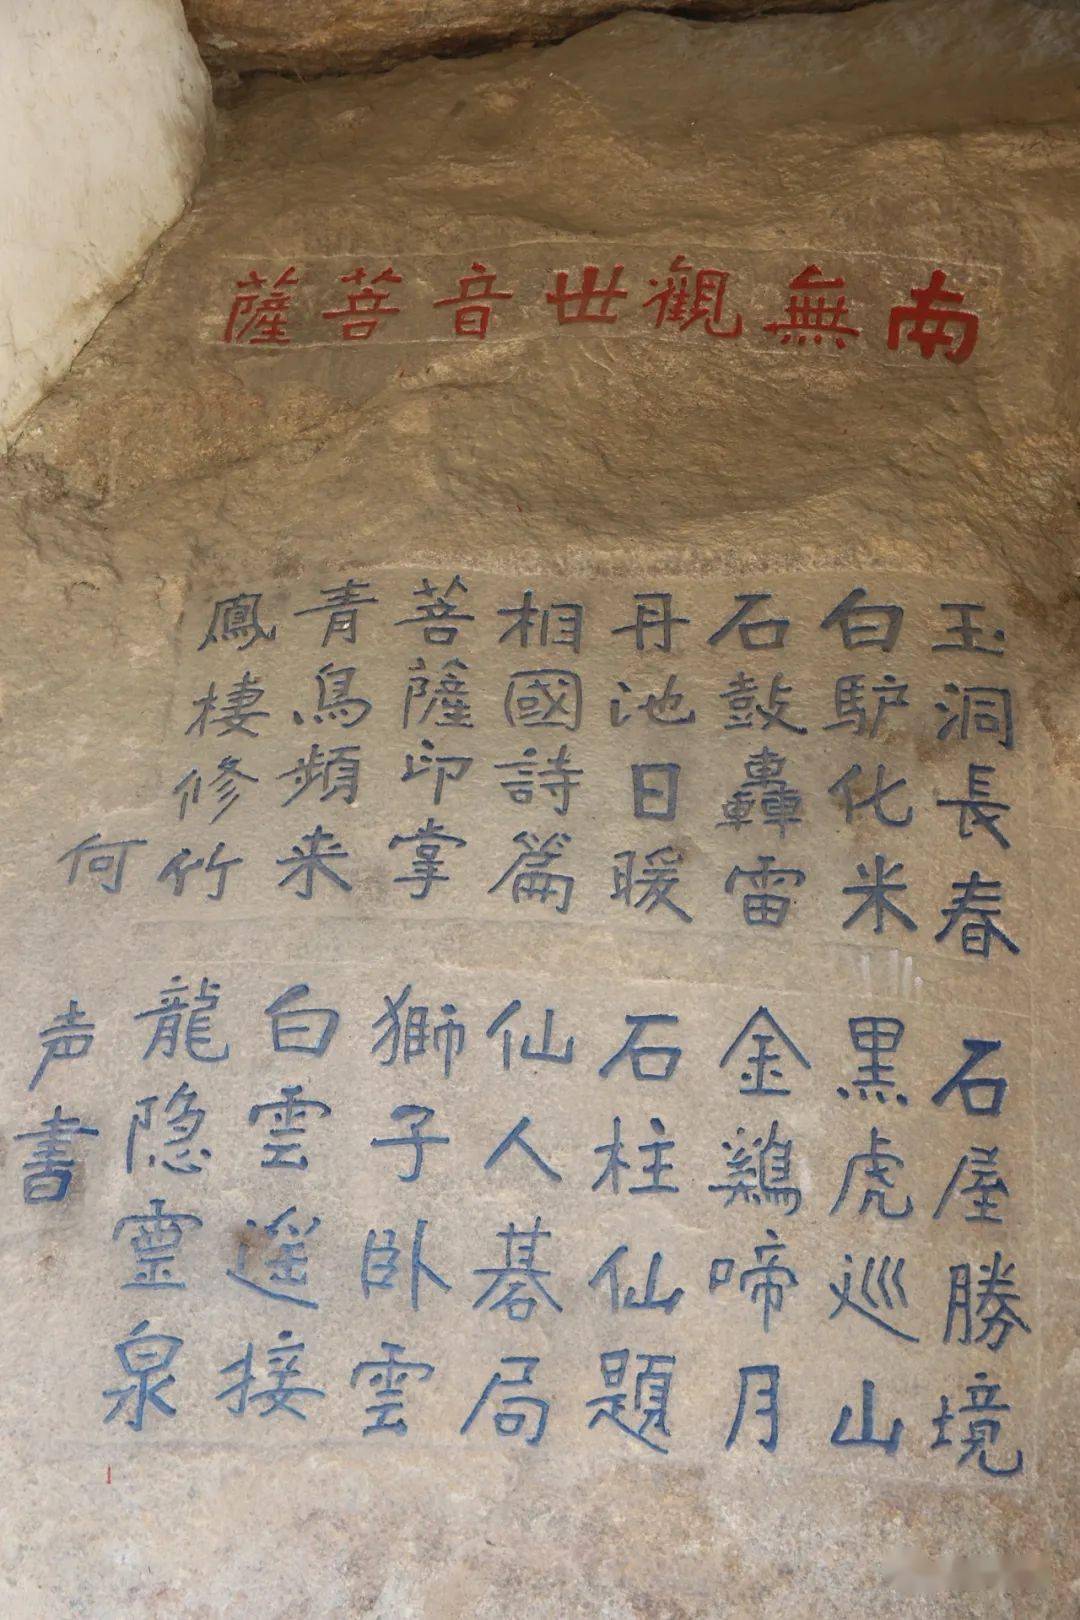 南無觀世音菩薩
玉洞長春石屋勝境
白馿化米黑虎巡山
石鼓轟雷金鷄啼月
丹池日暖石柱仙題
相國詩篇仙人碁局
菩薩印掌獅子卧雲
青鳥頻来白雲遥接
鳳棲修竹龍隐霊泉
何声書